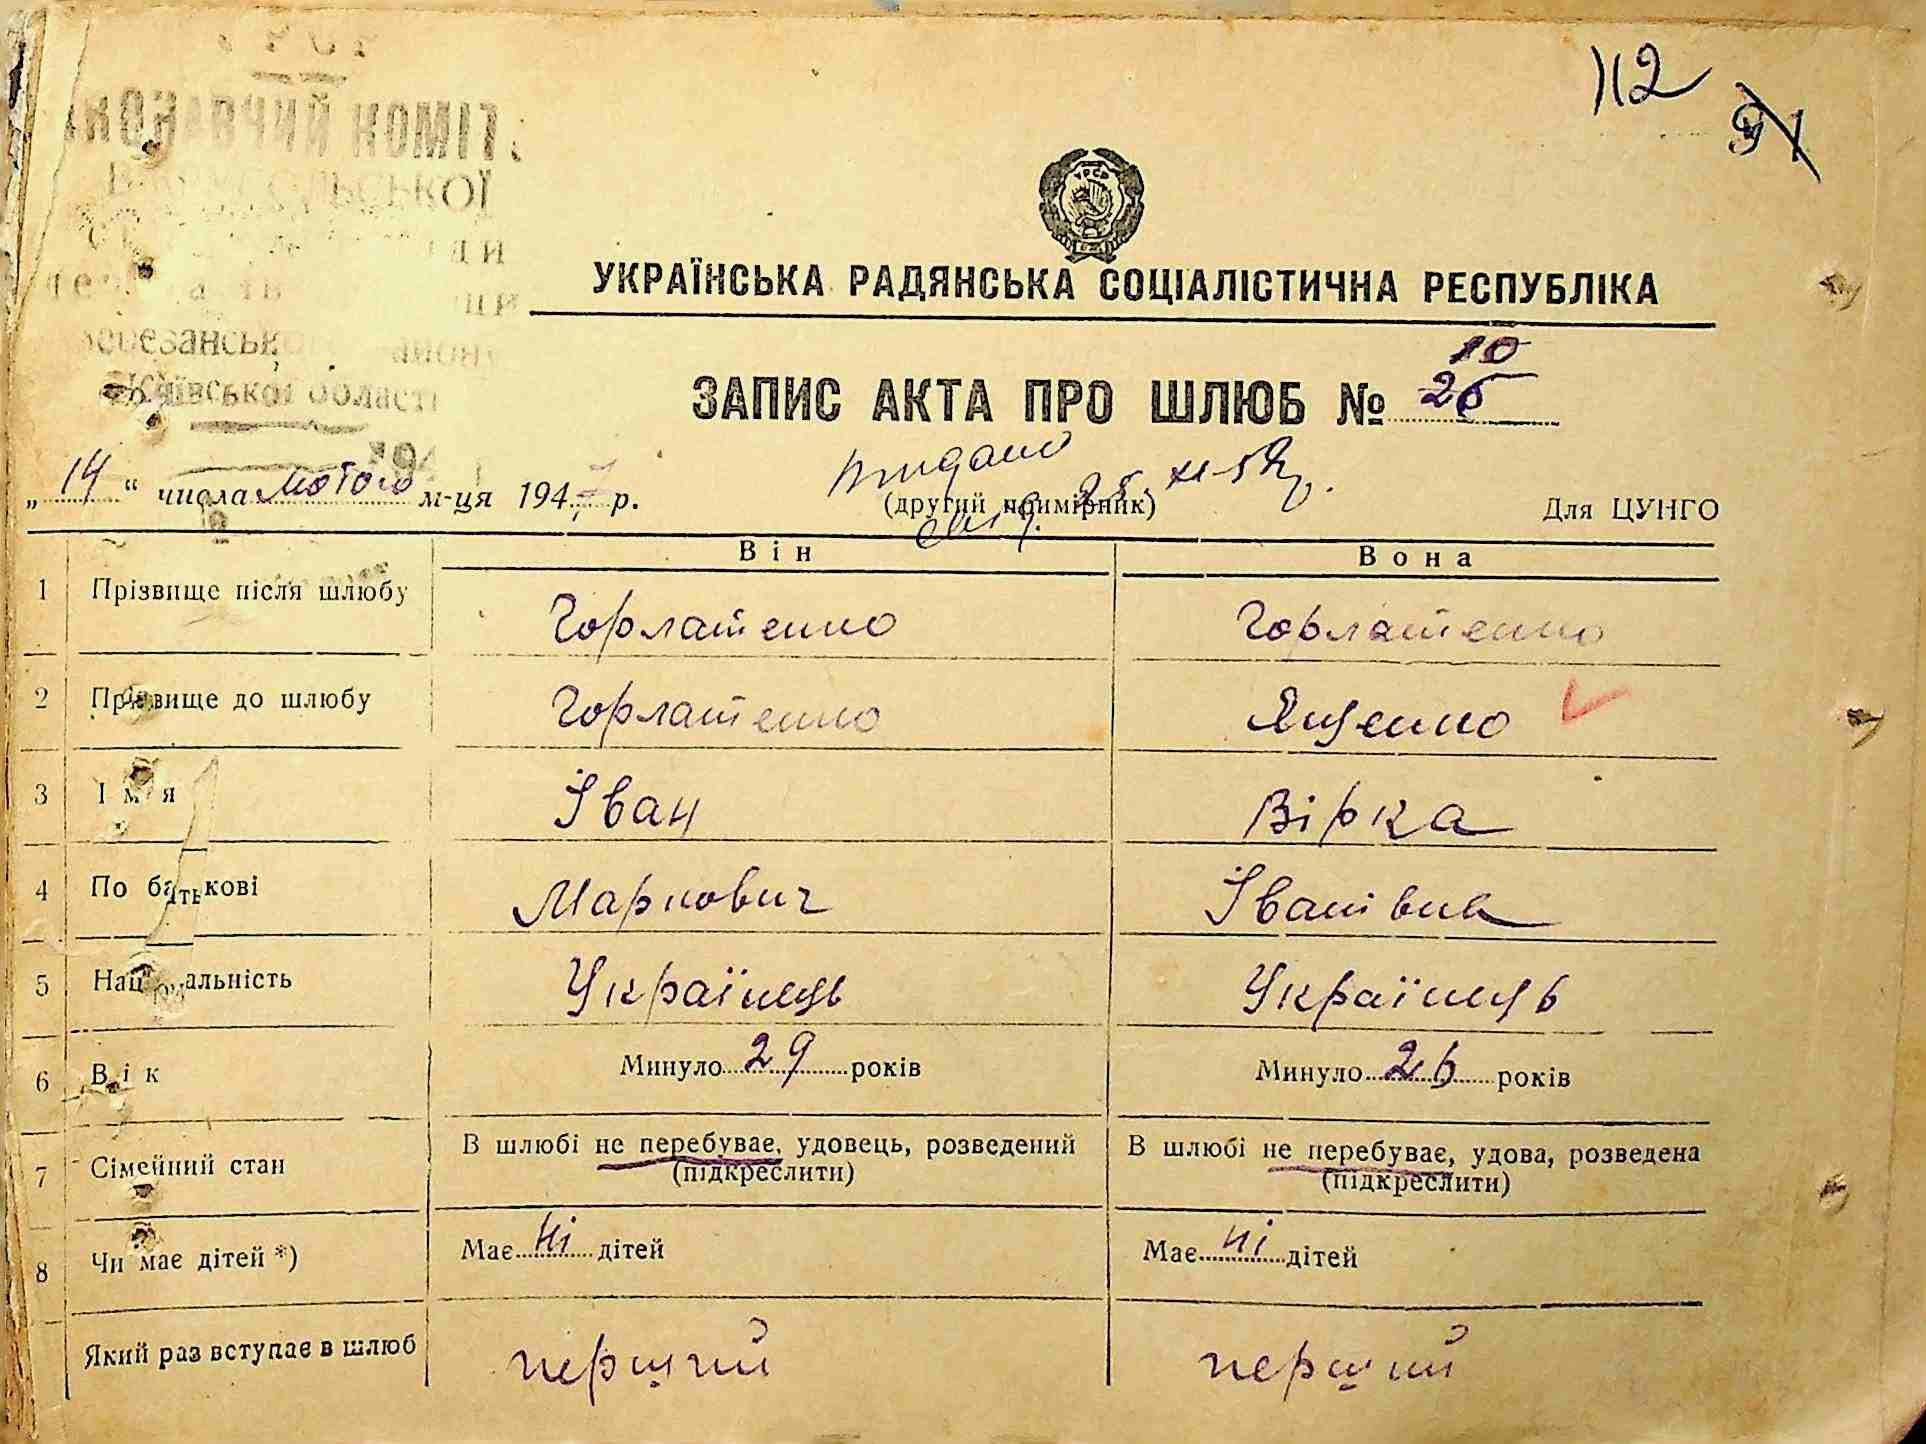 112
91
ВИКОНАВЧИЙ КОМІТЕТ
УРСР
УКРАЇНСЬКА РАДЯНСЬКА СОЦІАЛІСТИЧНА РЕСПУБЛІКА
Березанського району
Київської області
10
ЗАПИС АКТА ПРО ШЛЮБ № 26
„ 14 “ числа лютого м-ця 1947 р.
видано
(другий примірник)
Для ЦУНГО
Він Вона
1 Прізвище після шлюбу Горлатенко Горлатенко
2 Прізвище до шлюбу Горлатенко Яценко
3 Ім'я Іван Вірка
4 По батькові Маркович Іванівна
5 Національність Українець Українець
6 Вік Минуло 29 років Минуло 26 років
7 Сімейний стан В шлюбі не перебуває, удовець, розведений В шлюбі не перебуває, удова, розведена
(підкреслити) (підкреслити)
8 Чи має дітей *) Має ні дітей Має ні дітей
Який раз вступає в шлюб перший перший